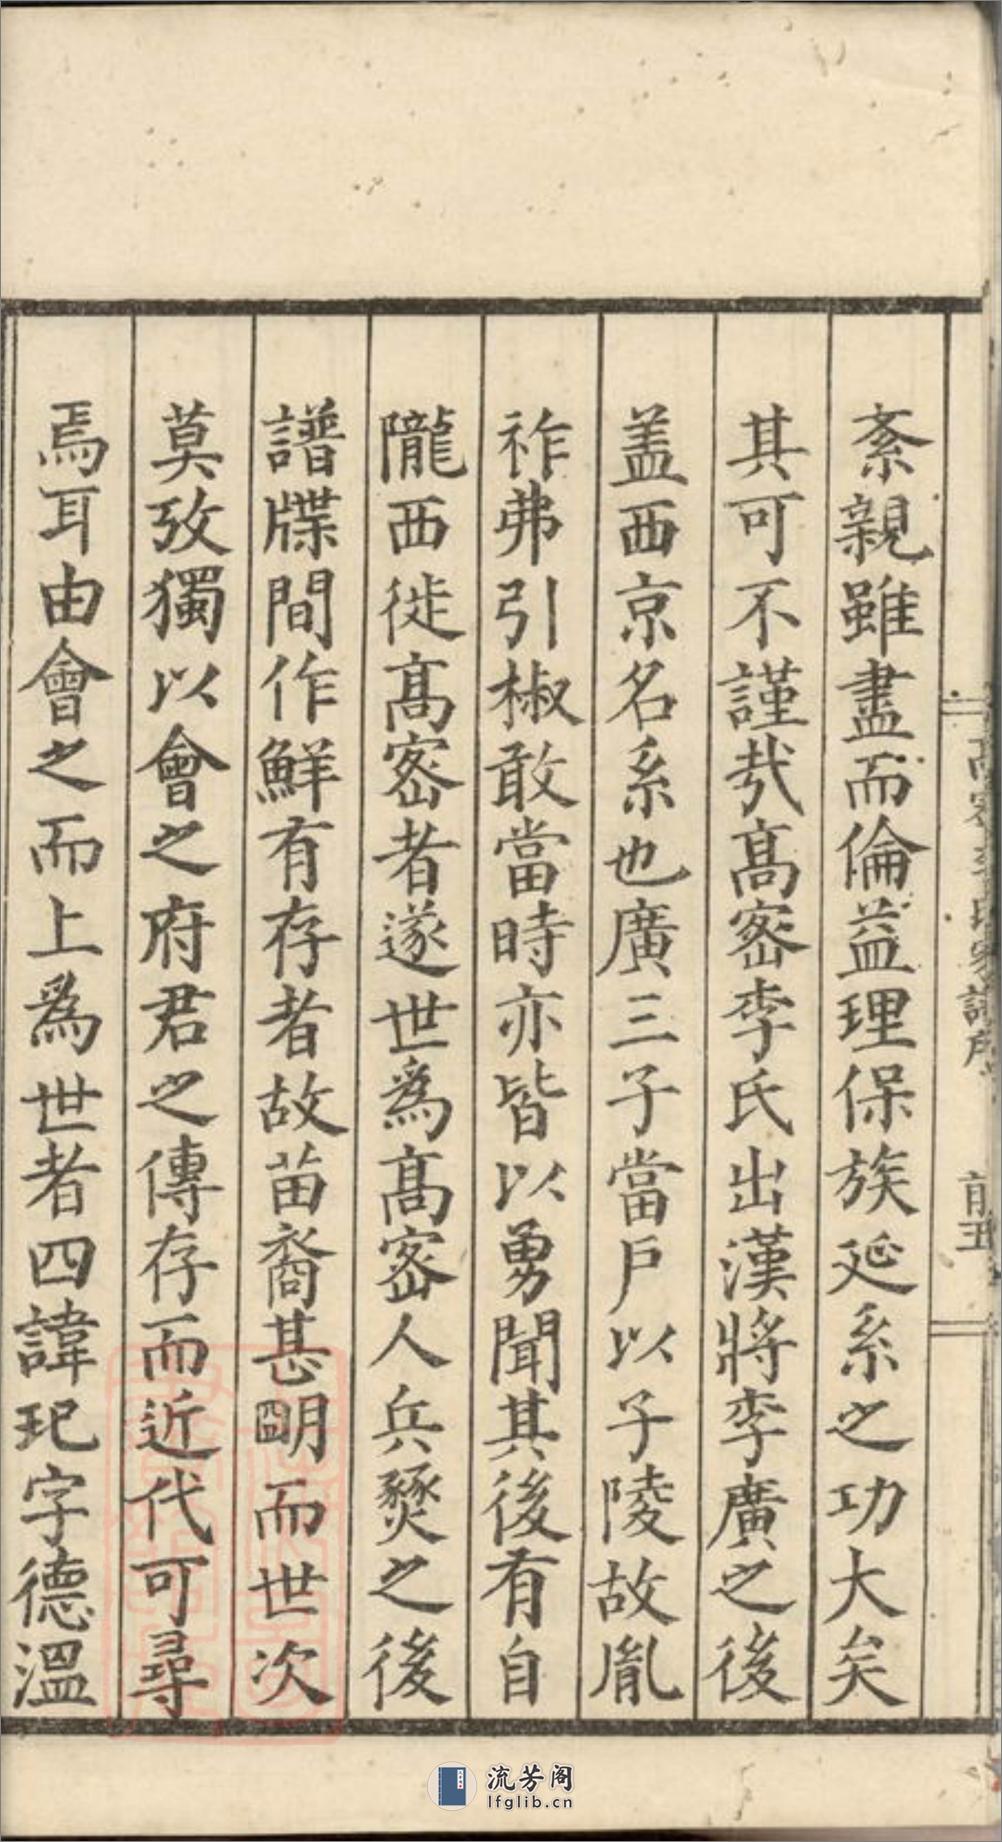 紊親雖盡而倫益理保族延系之功大矣
其可不謹㢤髙宻李氏出漢將李廣之後
盖西京名系也廣三子當戶以子陵故胤
祚弗引椒敢當時亦皆以勇聞其後有自
隴西徙髙宻者遂世爲髙宻人兵燹之後
譜牒間作鮮有存者故苗裔甚明而世次
莫攷獨以會之府君之傳存而近代可尋
焉耳由會之而上爲世者四諱玘字德溫
流芳阁
lfglib.cn